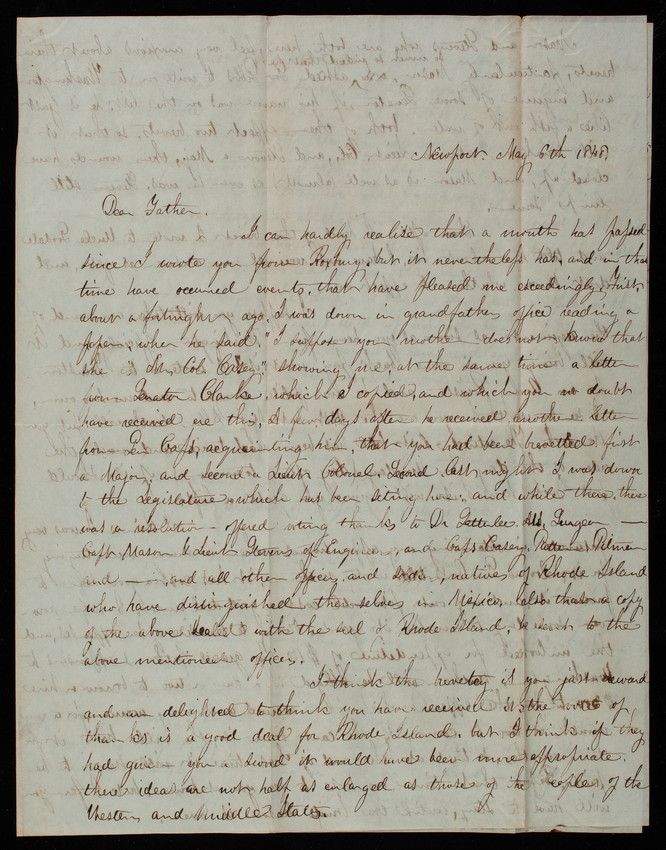 Newport. May 6th 1848
Dear Father,
I can hardly realise that a month has passed
since I wrote you from Roxbury, but it nevertheless has, and in that
time have occurred events, that have pleased me exceedingly. First
about a fortnight ago, I was down in grandfathers office reading a
paper, when he said, "I suppose you mother does not know that
she "Lt. Col Casey," showing me, at the same time a letter
from Senator Clarke, which I copied, and which you no doubt
have received ere this, A few days after he received another letter
from Gen Cass, acquainting him, that you had been brevetted first
a Major, and second a Lieut Colonel. Last night I was down
to the Legislature which has been siting here, and while there, there
was a resolution offered voting thanks to Dr
Capt Mason & Lieut Stevens of Engineers, and Capts Casey, Pitman
and — , and all other officers, and natives of Rhode Island
who have distinguished themselves in Mexico, also that a copy
of the above with the seal of Rhode Island, be sent to the
above mentioned officers.
I think the brevetcy is you just reward
and am delighted to think you have received it, the vote of
thanks is a good deal for Rhode Island, but I think if they
had give you a sword it would have been more appropriate.
there ideas are not half as enlarged as those of the people, of the
Western and Middle States.